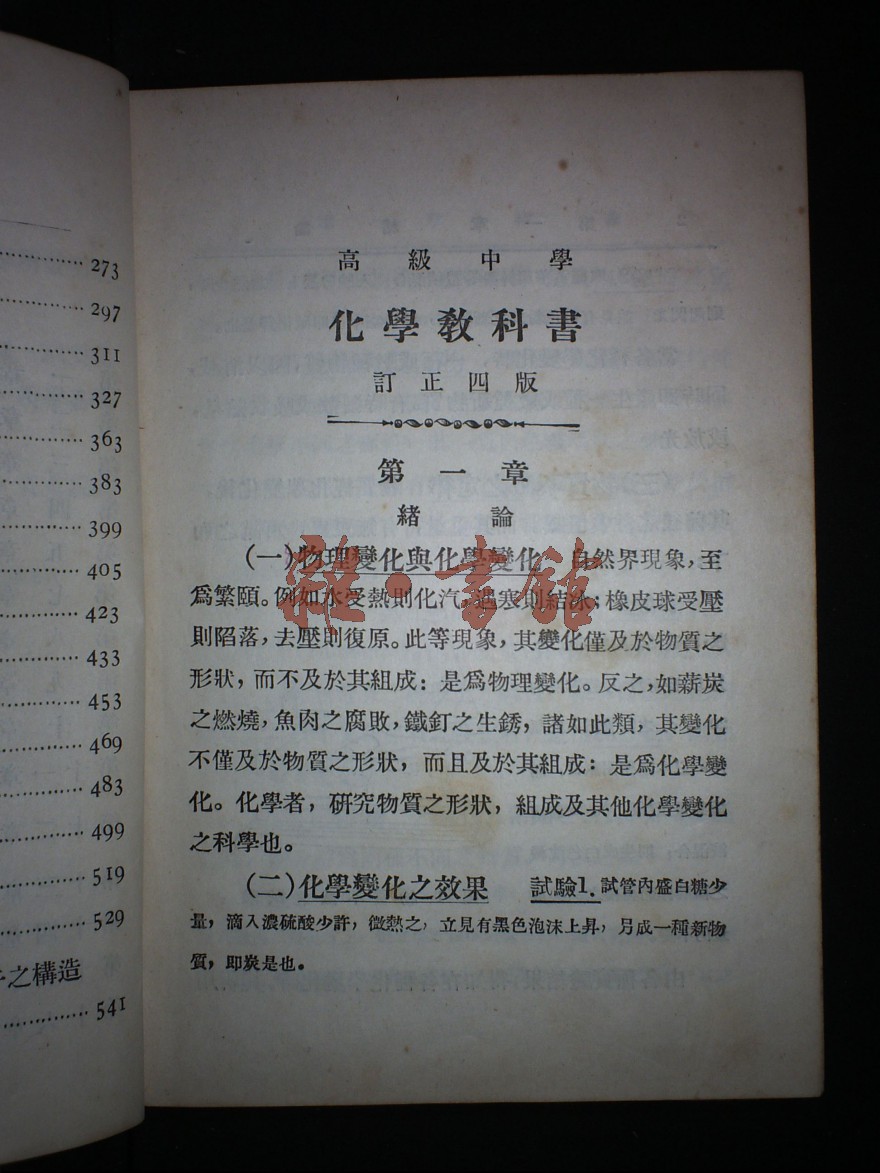 273
297
311
327
363
383
399
405
423
433
453
469
483
499
519
529
之構造
541
高級中學
化學教科書
訂正四版
第一章
緒論
(一)物理變化與化學變化 自然界現象，至
爲繁頤。例如水受熱則化汽，遇寒則結冰；橡皮球受壓
則陷落，去壓則復原。此等現象，其變化僅及於物質之
形狀，而不及於其組成：是爲物理變化。反之，如薪炭
之燃燒，魚肉之腐敗，鐵釘之生銹，諸如此類，其變化
不僅及於物質之形狀，而且及於其組成：是爲化學變
化。化學者，研究物質之形狀，組成及其他化學變化
之科學也。
(二)化學變化之效果 試驗1. 試管內盛白糖少
量，滴入濃硫酸少許，微熱之，立見有黑色泡沫上昇，另成一種新物
質，即炭是也。
雜·書館